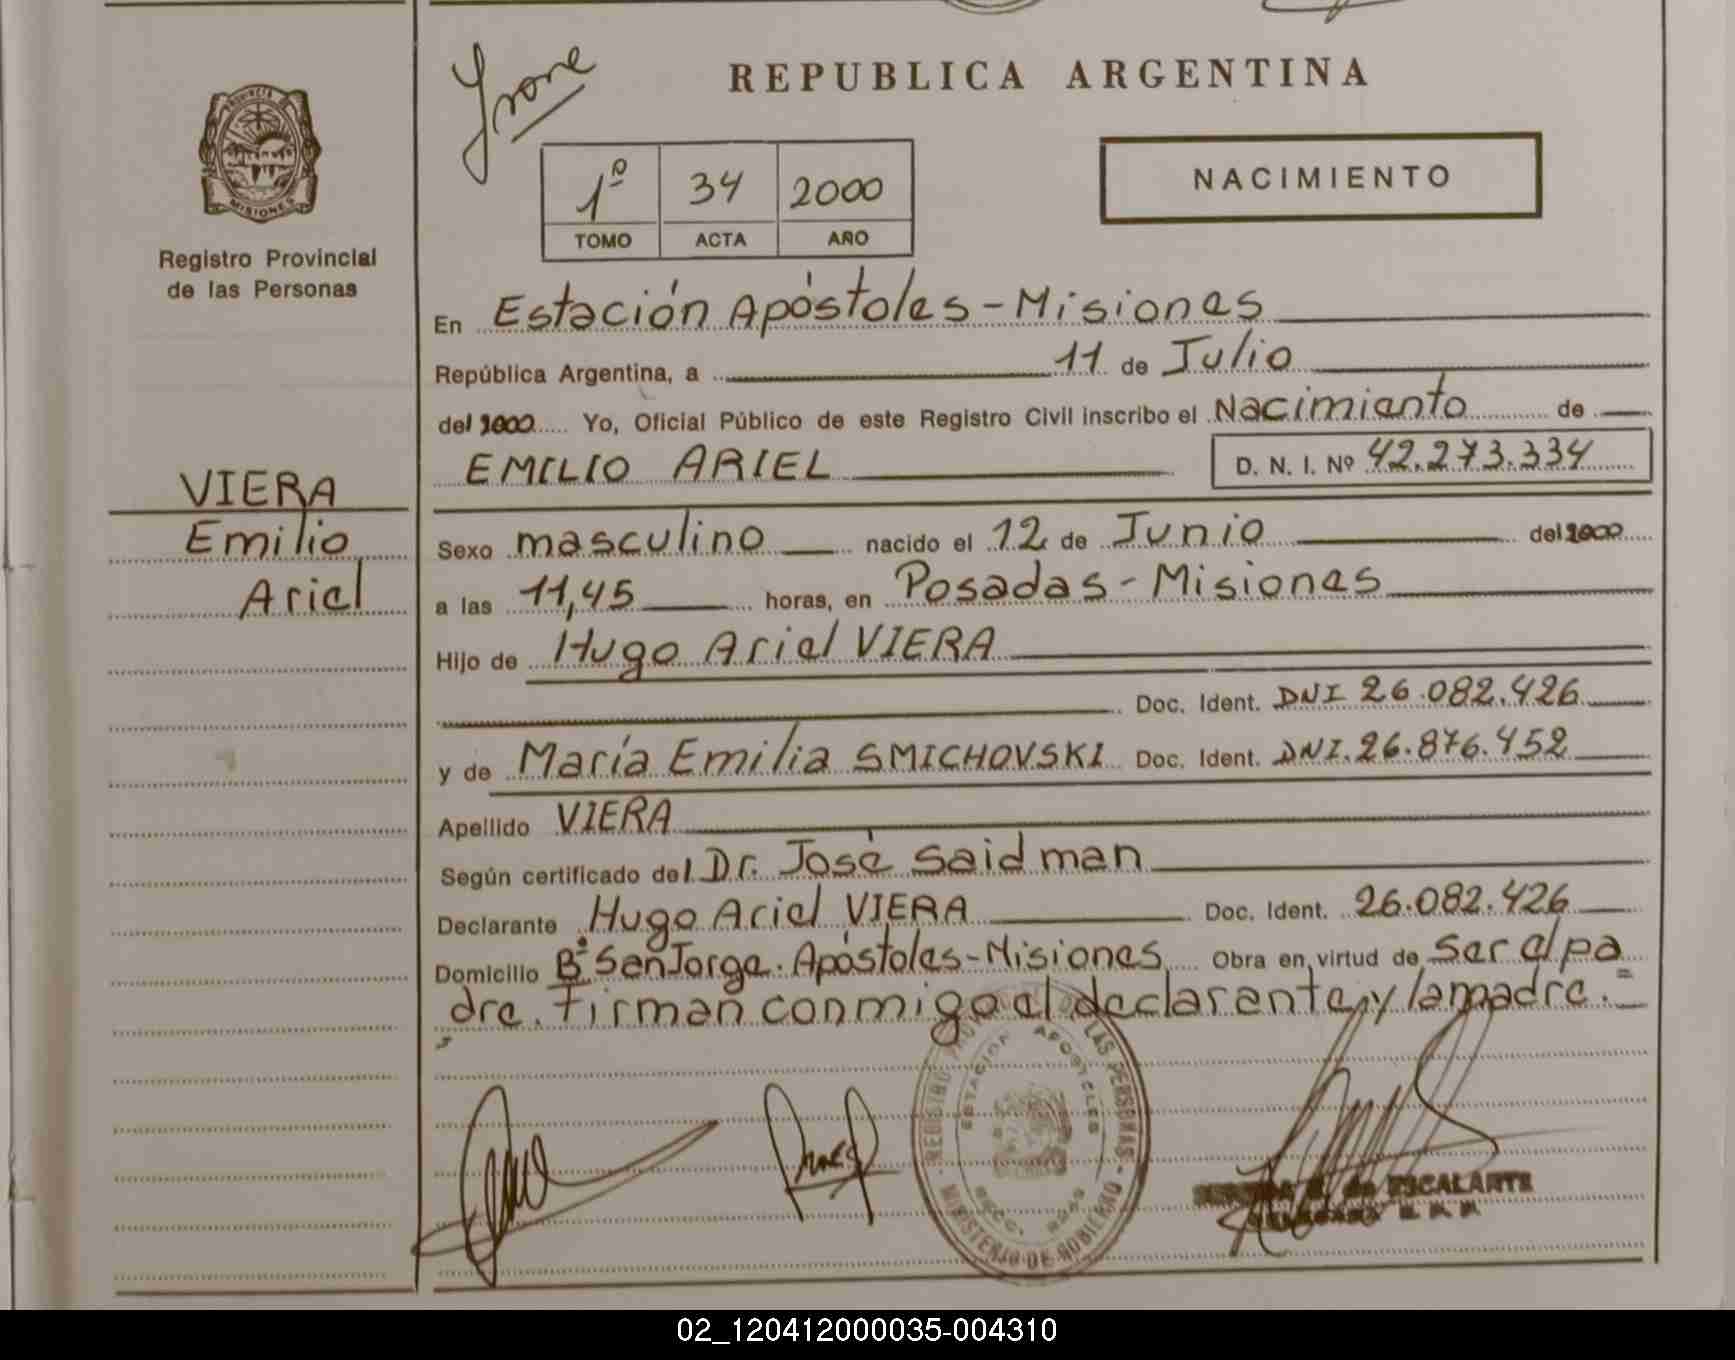 Irone
REPUBLICA ARGENTINA
PROVINCIA DE
MISIONES
Registro Provincial
de las Personas
1º 34 2000
TOMO ACTA AÑO
NACIMIENTO
En Estación Apóstoles-Misiones
República Argentina, a 11 de Julio
del 2000 Yo, Oficial Público de este Registro Civil inscribo el Nacimiento de
EMILIO ARIEL D. N. I. Nº 42.273.334
VIERA
Emilio
Ariel
Sexo masculino nacido el 12 de Junio del 2000
a las 11,45 horas, en Posadas-Misiones
Hijo de Hugo Ariel VIERA
Doc. Ident. DNI 26.082.426
y de María Emilia SMICHOVSKI Doc. Ident. DNI.26.876.452
Apellido VIERA
Según certificado del Dr. José Saidman
Declarante Hugo Ariel VIERA Doc. Ident. 26.082.426
Domicilio Bº San Jorge. Apóstoles-Misiones Obra en virtud de ser el pa=
dre. Firman conmigo el declarante y la madre.=
REGISTRO PROVINCIAL DE LAS PERSONAS - MINISTERIO DE GOBIERNO
ESTACION APOSTOLES
de ESCALANTE
02_120412000035-004310